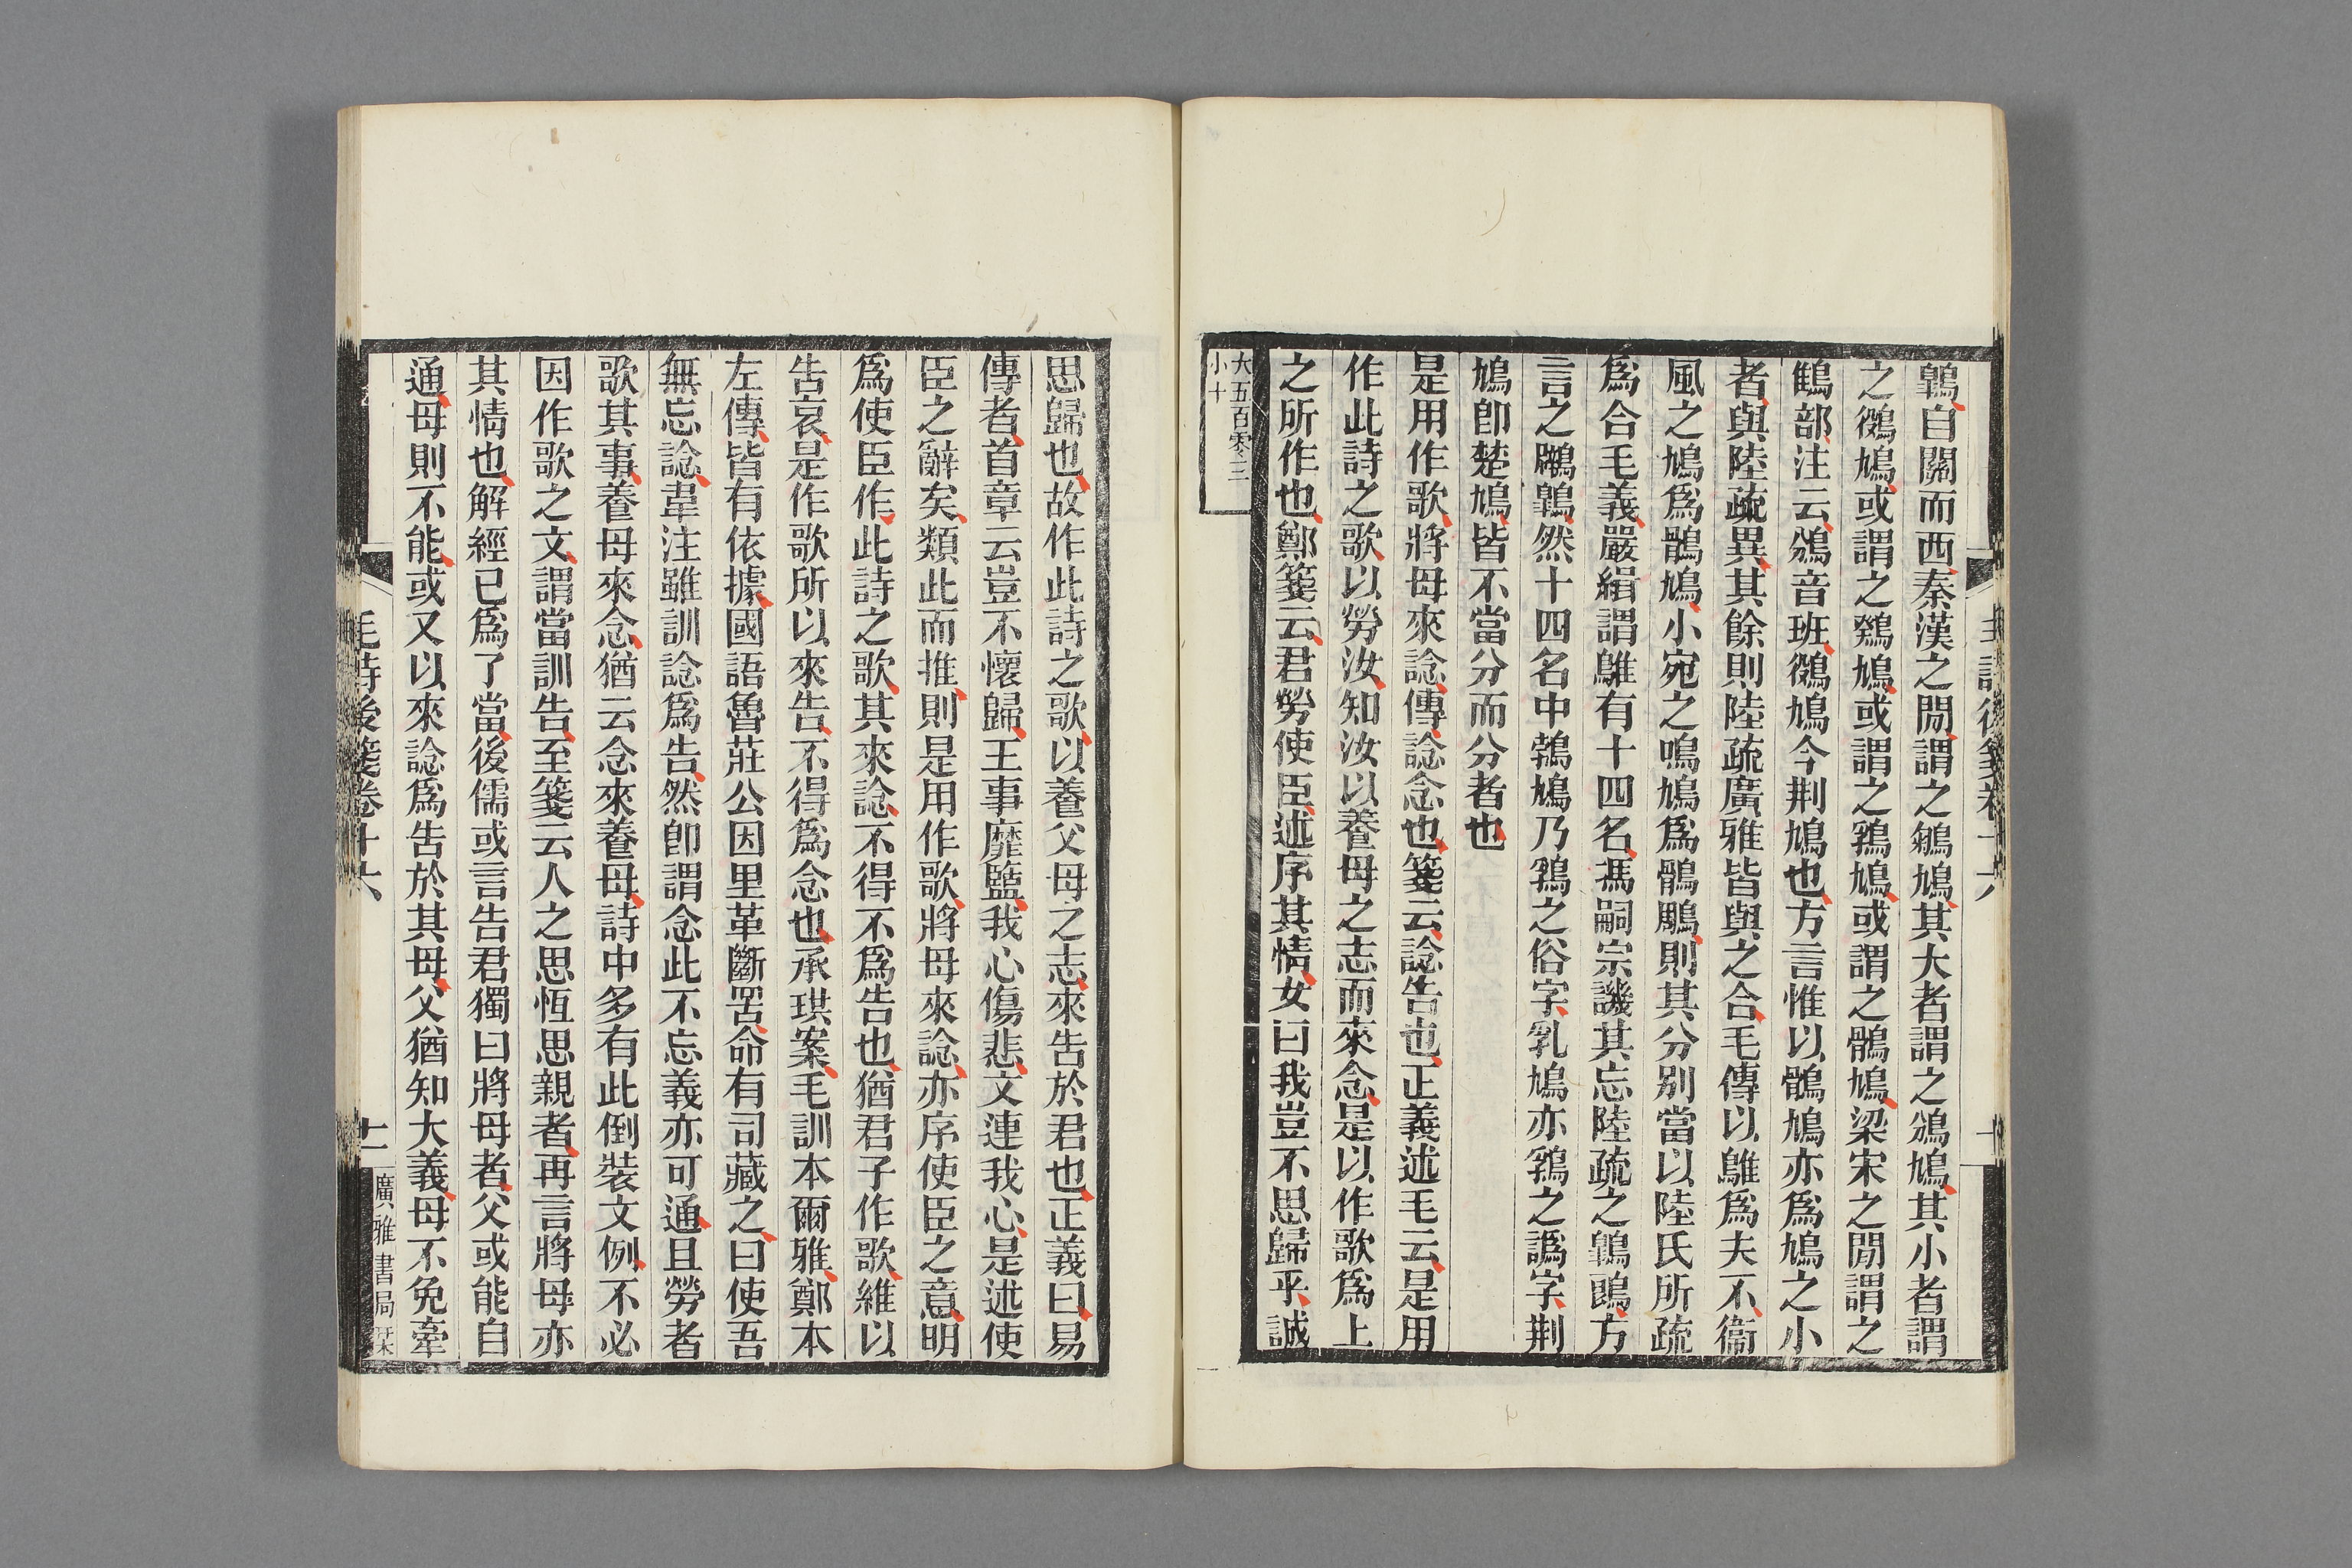 鶉自關而西秦漢之間謂之鵴鳩其大者謂之鳻鳩其小者謂
之鵖鳩或謂之鵽鳩或謂之鶏鳩或謂之鶻鳩梁宋之間謂之
鶴部注云鳻音班鵖鳩今荆鳩也方言惟以鶻鳩亦爲鳩之小
者與陸疏異其餘則陸疏廣雅皆與之合毛傳以鵻爲夫不衞
風之鳩爲鶻鳩小宛之鳴鳩爲鶻鵰則其分別當以陸氏所疏
爲合毛義嚴緝謂鵻有十四名馮嗣宗譏其忘陸疏之方
言之然十四名中鵓鳩乃之俗字乳鳩亦之譌字荆
鳩卽楚鳩皆不當分而分者也
是用作歌將母來諗傳諗念也箋云諗告也正義述毛云是用
作此詩之歌以勞汝知汝以養母之志而來念是以作歌爲上
之所作也鄭箋云君勞使臣述序其情女曰我豈不思歸乎誠
大五百零三
小十
思歸也故作此詩之歌以養父母之志來告於君也正義曰易
傳者首章云豈不懷歸王事靡盬我心傷悲文連我心是述使
臣之辭矣類此而推則是用作歌將母來諗亦序使臣之意明
爲使臣作此詩之歌其來諗不得不爲告也猶君子作歌維以
告哀是作歌所以來告不得爲念也承珙案毛訓本爾雅鄭本
左傳皆有依據國語魯莊公因里革斷罟命有司藏之曰使吾
無忘諗韋注雖訓諗爲告然卽謂念此不忘義亦可通且勞者
歌其事養母來念猶云念來養母詩中多有此倒裝文例不必
因作歌之文謂當訓告至箋云人之思恆思親者再言將母亦
其情也解經已爲了當後儒或言告君獨曰將母者父或能自
通母則不能或又以來諗爲告於其母父猶知大義母不免牽
毛詩後箋卷十六
十一
廣雅書局栞